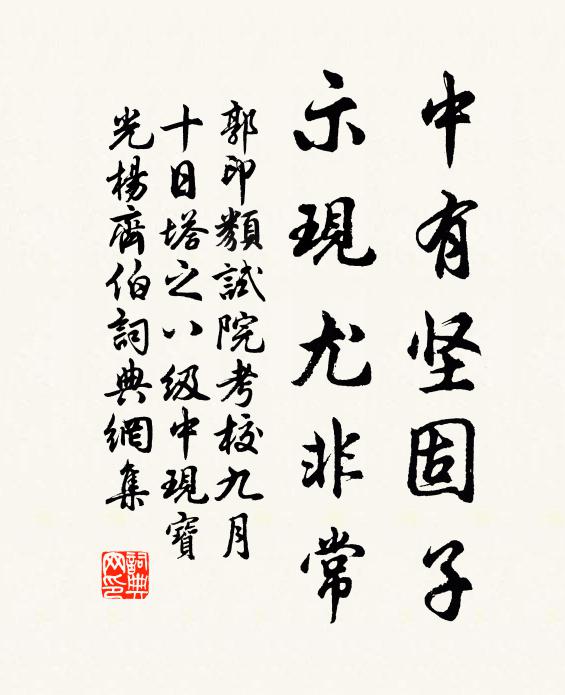 中有坚固子
示現尤非常
郭印類試院考校九月
十日塔之八级中現寶
光楊齊伯詞典網集
詞典
网印